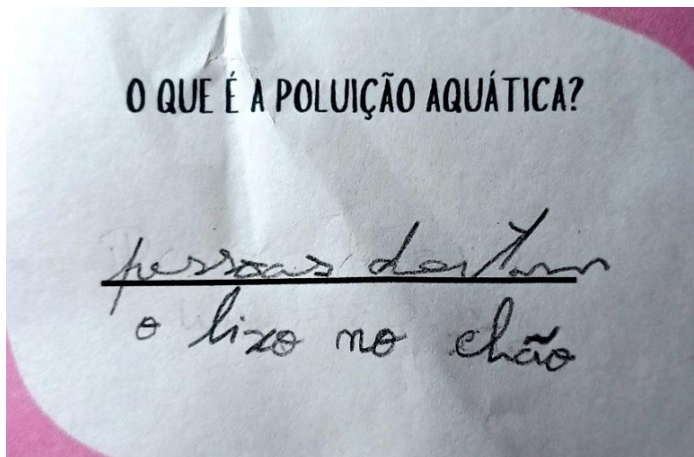 O QUE É A POLUIÇÃO AQUÁTICA?
pessoas deitam
o lixo no chão